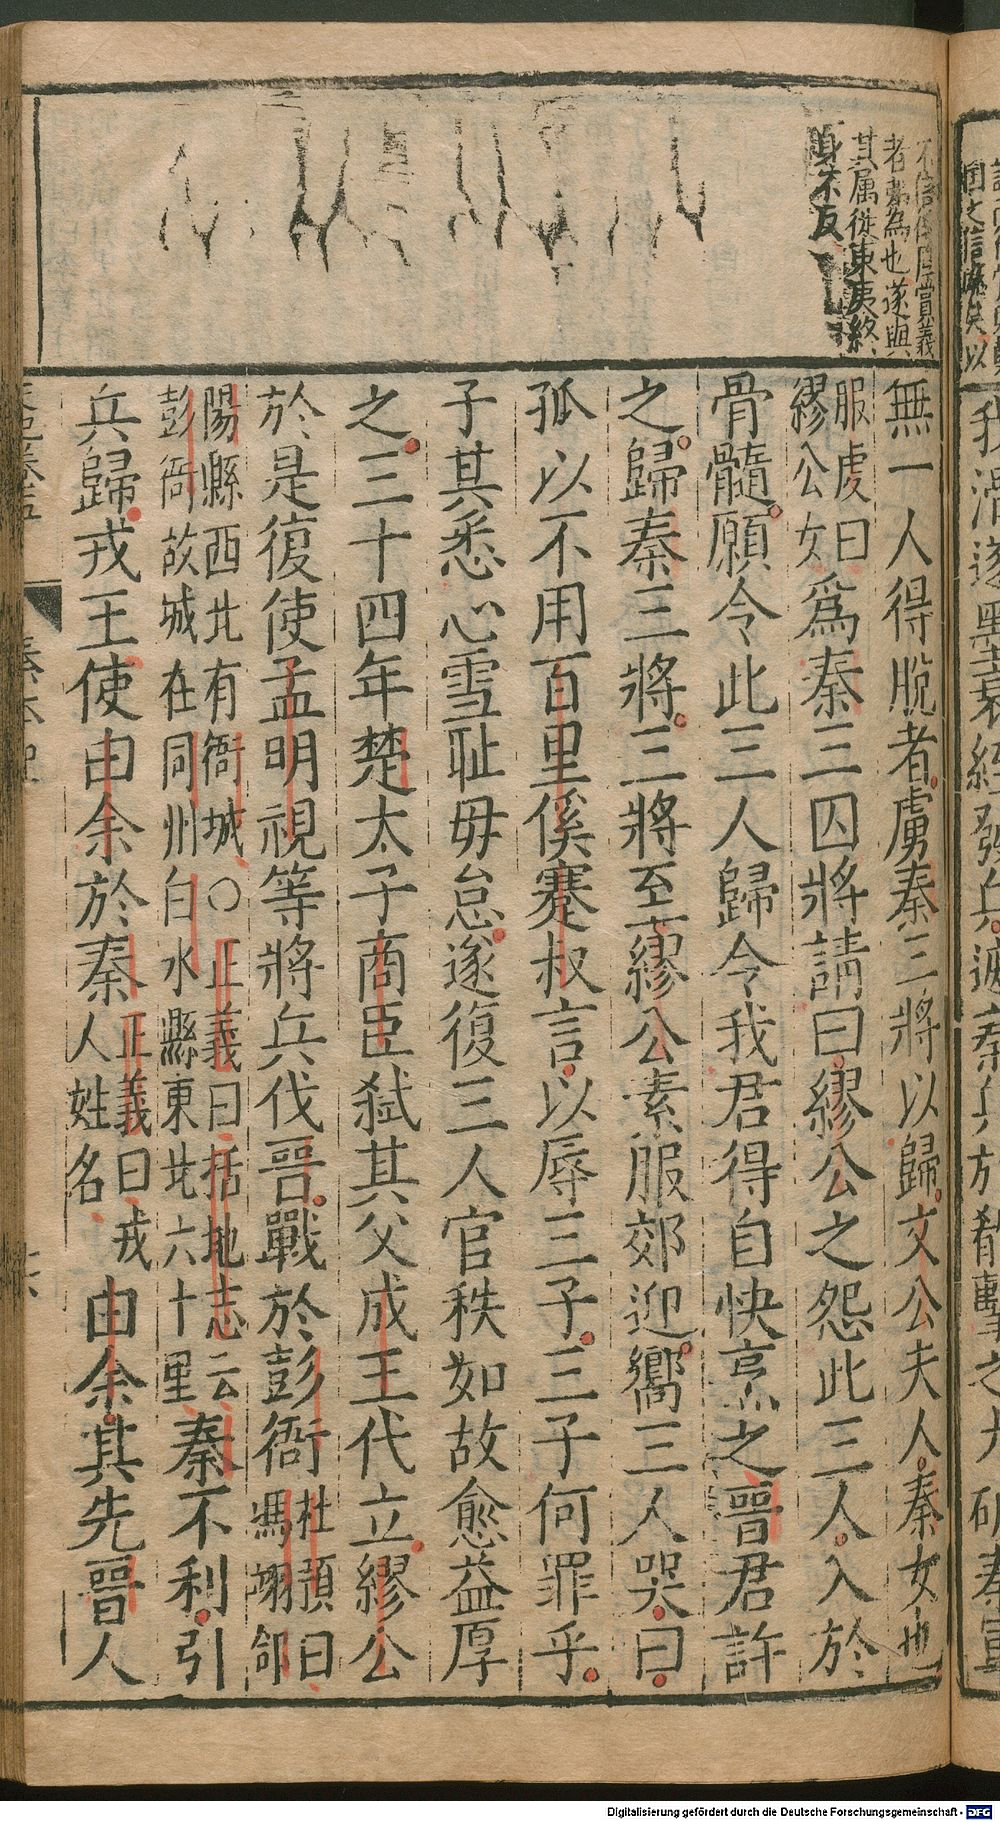 者弗為也遂與
其属徙東夷終
身不反
無一人得脱者虜秦三將以歸文公夫人秦女也
服虔曰
繆公女
爲秦三囚將請曰繆公之怨此三人入於
骨髓願令此三人歸令我君得自快烹之晉君許
之歸秦三將三將至繆公素服郊迎嚮三人哭曰
孤以不用百里傒蹇叔言以辱三子三子何罪乎
子其悉心雪恥毋怠遂復三人官秩如故愈益厚
之三十四年楚太子商臣弑其父成王代立繆公
於是復使孟明視等將兵伐晉戰於彭衙
杜預曰
馮翊郃
陽縣西北有衙城○正義曰括地志云
彭衙故城在同州白水縣東北六十里
秦不利引
兵歸戎王使由余於秦
正義曰戎
人姓名
由余其先晉人
秦本紀
十六
Digitalisierung gefördert durch die Deutsche Forschungsgemeinschaft - DFG